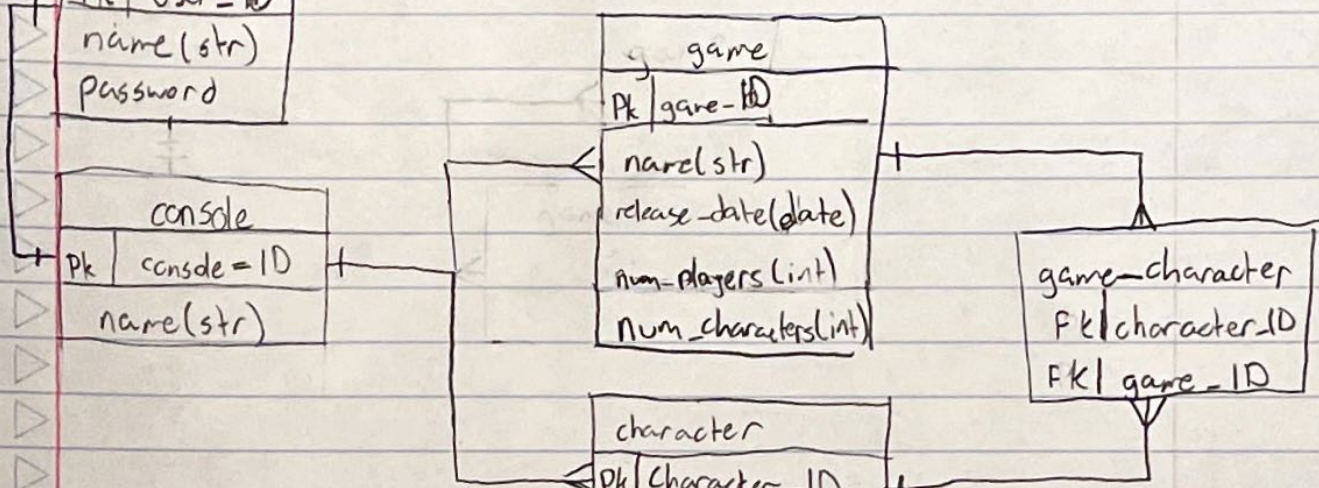 name(str)
password
console
Pk console=ID
name(str)
game
Pk game-ID
name(str)
release-date(date)
num-players(int)
num_characters(int)
game_character
Fk character_ID
FK game_ID
character
Pk Character_ID